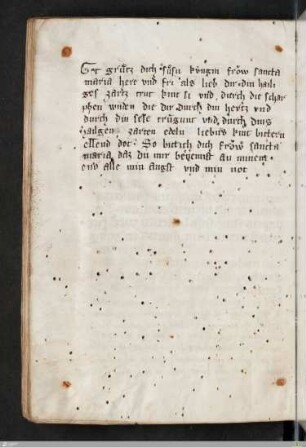 Got grůtz dich sůssu kungin frow sancta
maria here vnd fri als lieb dir din hail
ges zartz trut kint si vnd durch die schar
phen wnden die dir durch din hertz vnd
durch din sele trůgent vnd durch dines
hailgen zarten edeln liebers kint bittern
ellend dot So bitt ich dich frow sancta
maria daz du mir benemst an minem
end alle min angst vnd min not